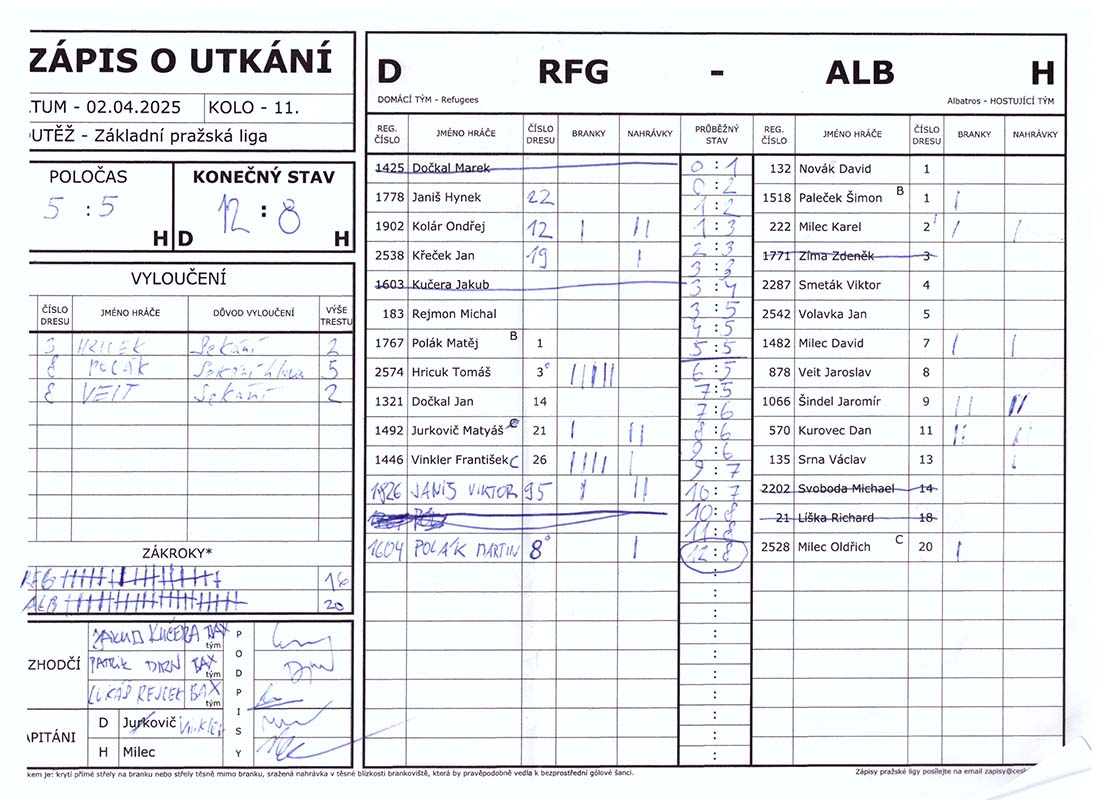 ZÁPIS O UTKÁNÍ
TUM - 02.04.2025 KOLO - 11.
OUTĚŽ - Základní pražská liga
POLOČAS KONEČNÝ STAV
5 : 5 12 : 8
H D H
VYLOUČENÍ
ČÍSLO DRESU JMÉNO HRÁČE DŮVOD VYLOUČENÍ VÝŠE TRESTU
3 HRICEK Sekání 2
8 POLÁK 5
8 VEIT Sekání 2
ZÁKROKY*
RFG 16
ALB 20
ZHODČÍ JAKUB KUČERA BAX tým
PATRIK BAX tým
LUKÁŠ REJCEK BAX tým
PODPISY
APITÁNI D Jurkovič Vinkler
H Milec
D RFG - ALB H
DOMÁCÍ TÝM - Refugees Albatros - HOSTUJÍCÍ TÝM
REG. ČÍSLO JMÉNO HRÁČE ČÍSLO DRESU BRANKY NAHRÁVKY PRŮBĚŽNÝ STAV REG. ČÍSLO JMÉNO HRÁČE ČÍSLO DRESU BRANKY NAHRÁVKY
1425 Dočkal Marek
1778 Janiš Hynek 22
1902 Kolár Ondřej 12 | ||
2538 Křeček Jan 19 |
1603 Kučera Jakub
183 Rejmon Michal
1767 Polák Matěj B 1
2574 Hricuk Tomáš 3 |||||
1321 Dočkal Jan 14
1492 Jurkovič Matyáš 21 | ||
1446 Vinkler František C 26 |||| |
1826 JANIŠ VIKTOR 95 | ||
1604 POLÁK MARTIN 8 |
0 : 1
0 : 2
1 : 2
1 : 3
2 : 3
3 : 3
3 : 4
3 : 5
4 : 5
5 : 5
6 : 5
7 : 5
7 : 6
8 : 6
9 : 6
9 : 7
10 : 7
10 : 8
11 : 8
12 : 8
132 Novák David 1
1518 Paleček Šimon B 1 |
222 Milec Karel 2 | |
1771 Zíma Zdeněk 3
2287 Smeták Viktor 4
2542 Volavka Jan 5
1482 Milec David 7 | |
878 Veit Jaroslav 8
1066 Šindel Jaromír 9 || ||
570 Kurovec Dan 11 || |
135 Srna Václav 13 |
2202 Svoboda Michael 14
21 Líška Richard 18
2528 Milec Oldřich C 20 |
kem je: krytí přímé střely na branku nebo střely těsně mimo branku, sražená nahrávka v těsné blízkosti brankoviště, která by pravěpodobně vedla k bezprostřední gólové šanci.
Zápisy pražské ligy posílejte na email zapisy@cesk